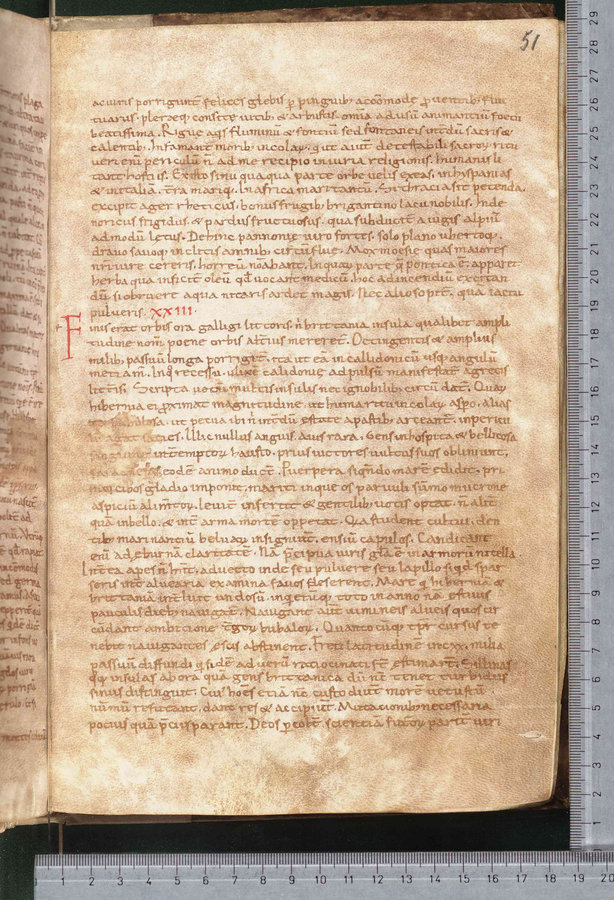 51
acuiris porrigunt felices glebis p̄ pinguib; accōmodę ꝓuentib; fruc
tuarus. pleræq; consitę uitib; & arbustis. omīa ad usū animantiū foetu
beatissima. Rigue aqs fluminū & fontiū sed fontaneis intdū sacris &
calentib;. Infamant moriḃ incolaꝝ. q ut aiunt detestabili sacroꝝ ritu
ueri enī periculū n̄ ad me recipio iniuria religionis. humanis li
tant hostiis. Ex isto sinu qua qua parte orbe uelis exeas. in hyspanias
& initalia. t̄ra mariq;. In africa mari tantū. Si n thracia sit petenda.
excipit ager rheticus. bonus frugib; brigantino lacu nobilis. Inde
noricus frigidus. & parcius fructuosus. qua subducit a iugis alpiū
admodū letus. Dehinc pannonię uiro fortes. solo plano uberioq;
drauo sauoq; inclitis amnib; circūflue. Mox moesię quas maiores
nri iure cereris. horreū noābant. In quaꝝ parte q̄ pontica ē. apparet
herba qua inficit oleū qd uocant medicū. hoc ad incendiū excitan
dū si obruere aqua nitaris ardet magis. Nec alio soprt. qua iactu
pulueris. XXIII.
Finis erat orbis ora gallici littoris. n̄ brittania insula. qualibet ampli
tudine nom̄. poene orbis alt̄ius mereret. Octingentis & amplius
milib; passuū longa porrigit. ita ut eā in callidonicū usq; angulū
metiam̄. In q recessu. ulixē calidonię adpulsū manifestat agrecis
litt̄is. Scripta uotū. multis insulis nec ignobilib; circū dat̄. Quaꝝ
hibernia ei ꝓximat magnitudine.
ut pecua ibi n̄ int̄dū ęstate a pastib; arceant̄. in periculū
agat saties. Illic nullus anguis. auis rara. Gens inhospita & bellicosa
sanguine int̄emptoꝝ hausto. prius uictores uultus suos oblinunt.
eodē animo duct̄. Puerpera siq̄ndo marē edidit. pri
mos cibos gladio imponit. mariti inque os paruuli sūmo mucrone
aspiciū alim̄toꝝ. leuit̄ infert & gentilib; uotis optat̄. n̄ alit̄
quā in bello. & int̄ arma mortē oppetat. Qui student cultui. den
tib; mari nantiū beluaꝝ insigniunt. ensiū capulos. Candicant
enī ad eburnā claritatē. Nā p̄cipua uiris gl̄a ē in armorū nitella.
apes n̄ hnt. aduecto inde seu puluere seu lapillo siqd spar
serit int̄ aluearia examina fauos deserent. Mare q̄ hiberniā &
brittaniā int̄luit undosū. inqetūq; toto in anno n̄ ęstiuis
pauculis dieb; nauigat̄. Nauigant aut̄ uimineis alueis quos cir
cūdant ambitione t̄goꝝ bubaloꝝ. Quanto cūq; tp̄r cursus te
nebit nauigantes escis abstinent. Freti latitudinē in cxx. milia
passuū diffundi q̄ fidē ad uerū ratiocinati sūt ęstimant̄. Sillinas
qq; insulas ab ora quā gens brittanica dūnonii tenet turbidus
sinus distinguit. Cui hoēs etiā nc̄ custodiunt morē uetustū
nūmū refutant. dant res & accipiunt. Mutationib; necessaria
pocius quā p̄ciis parant. Deos pcolt. scientiā futoꝝ parit̄ uiri
1 2 3 4 5 6 7 8 9 10 11 12 13 14 15 16 17 18 19 20